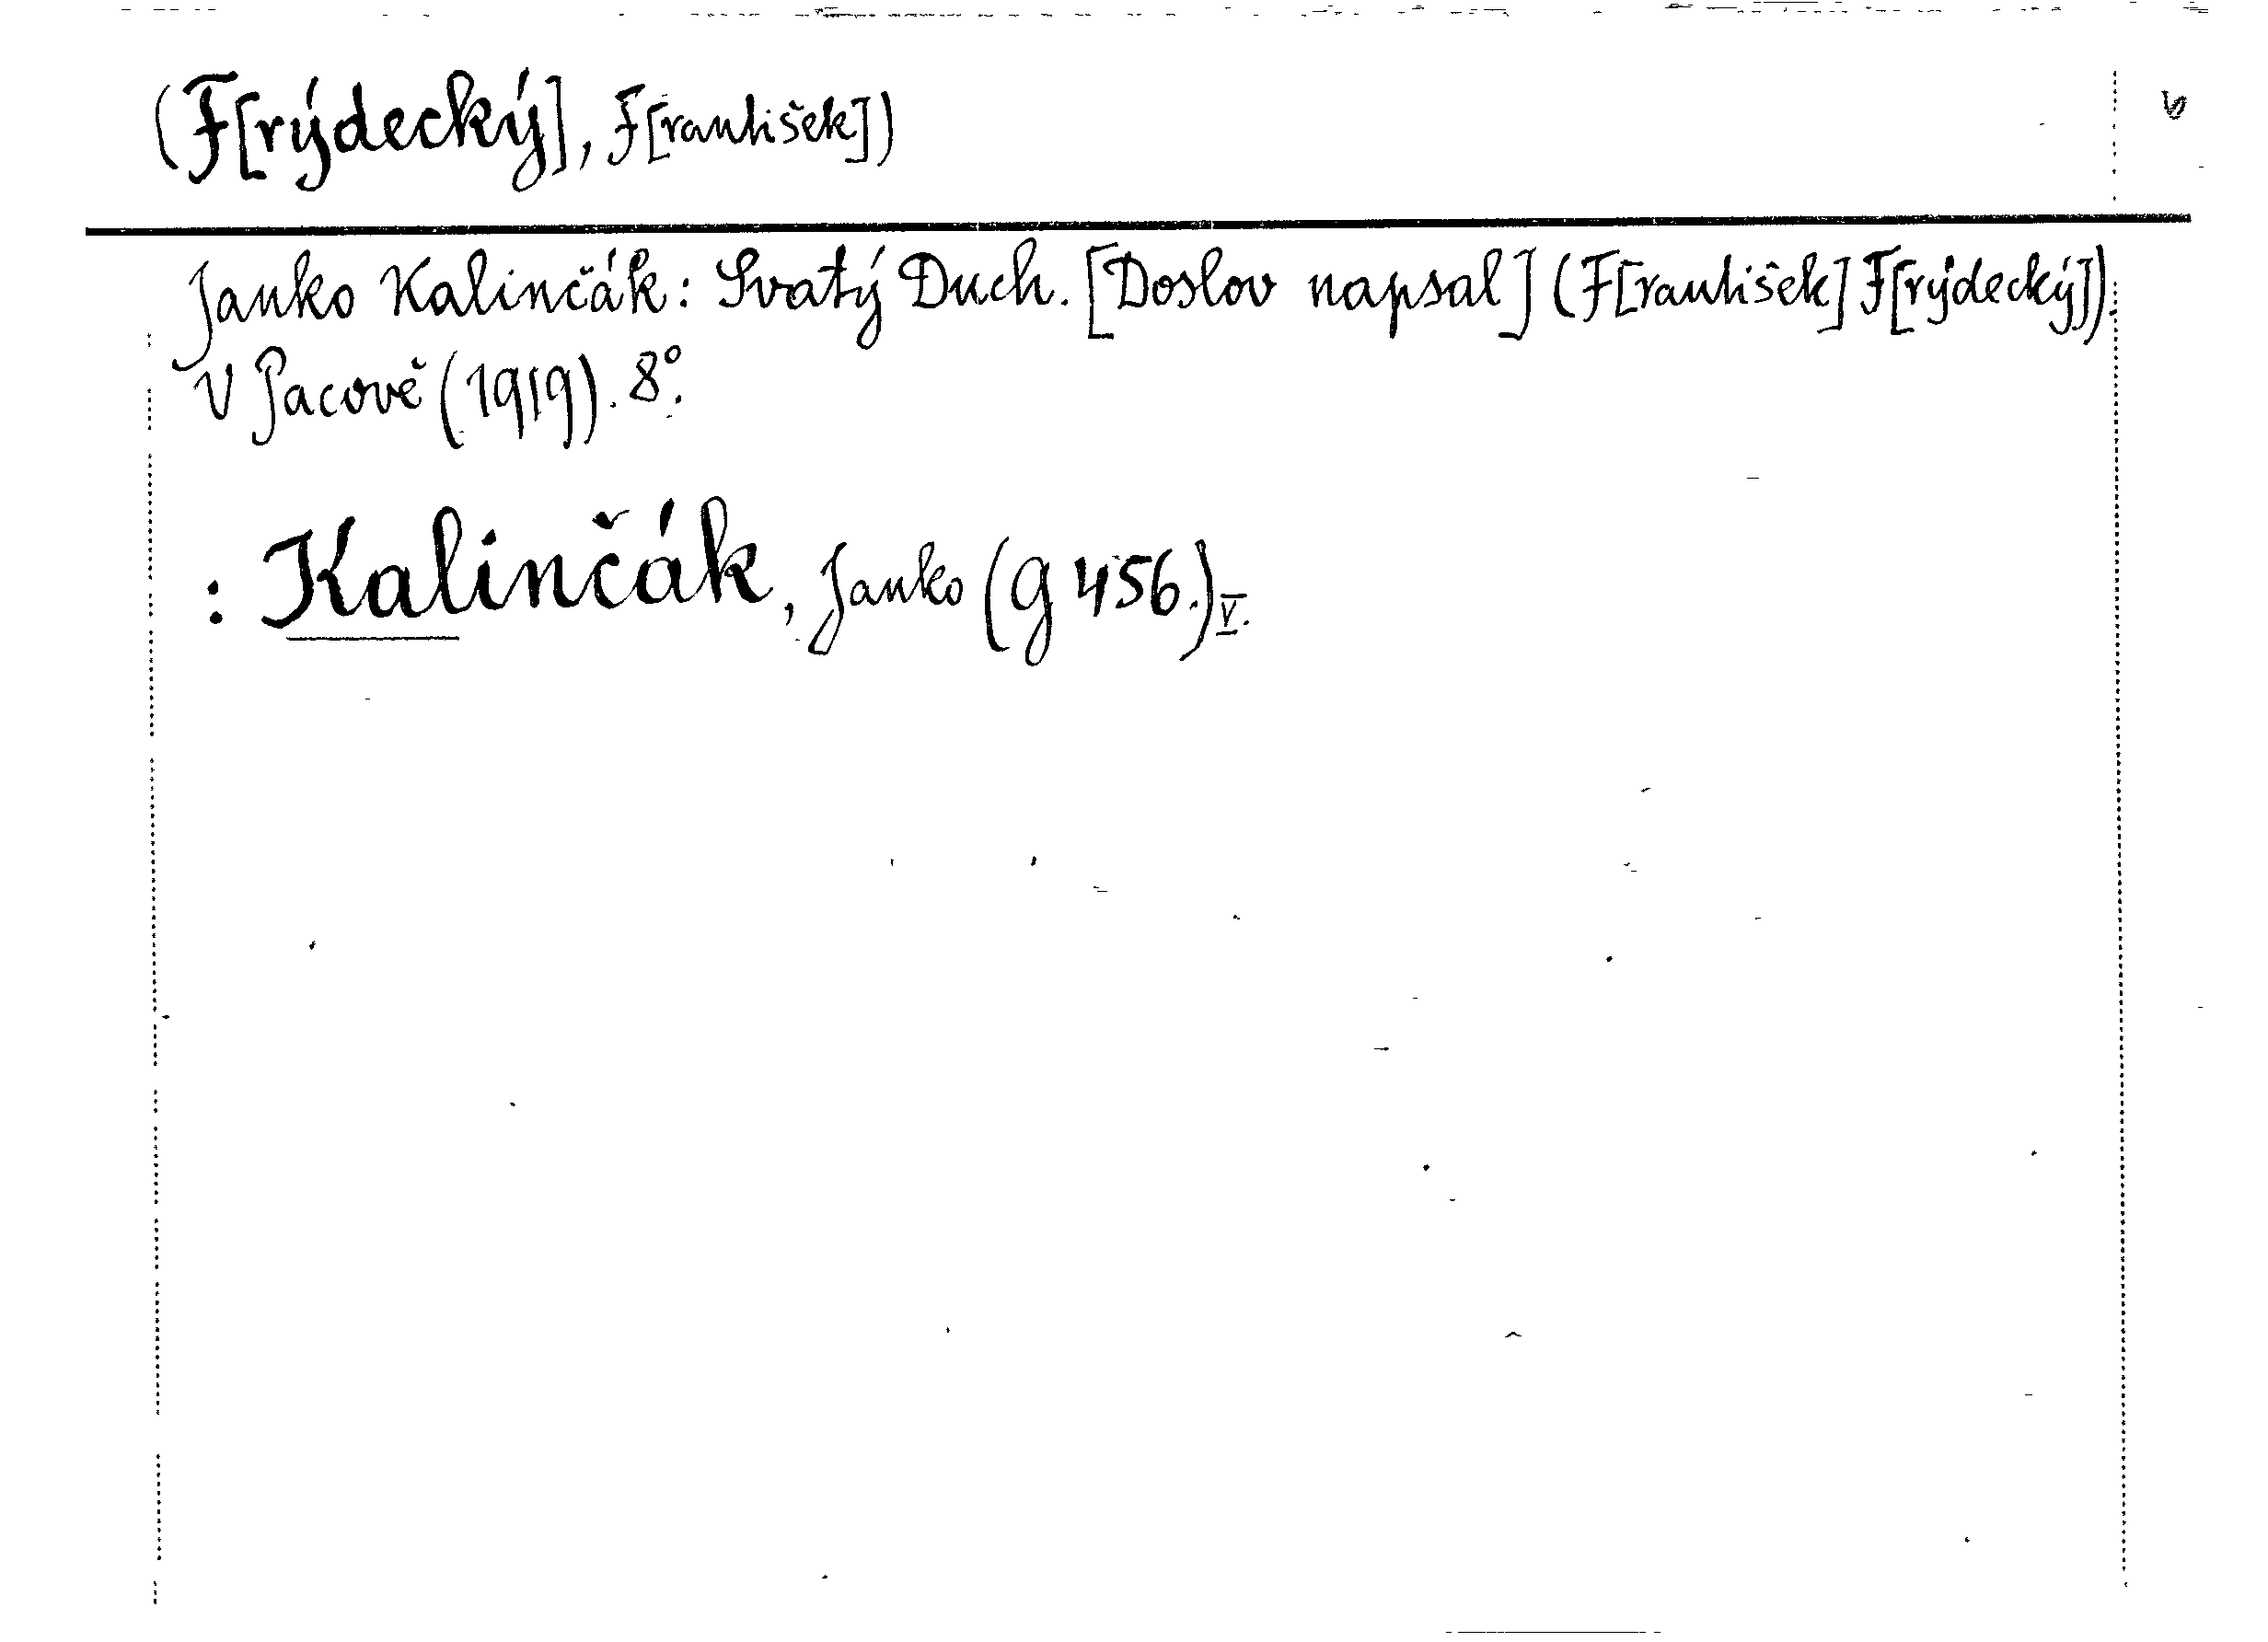 (F[rýdecký], F[rantišek])
Janko Kalinčák: Svatý Duch. [Doslov napsal] (F[rantišek] F[rýdecký]).
V Pacově (1919). 8°.
: Kalinčák, Janko (G 456.) V.